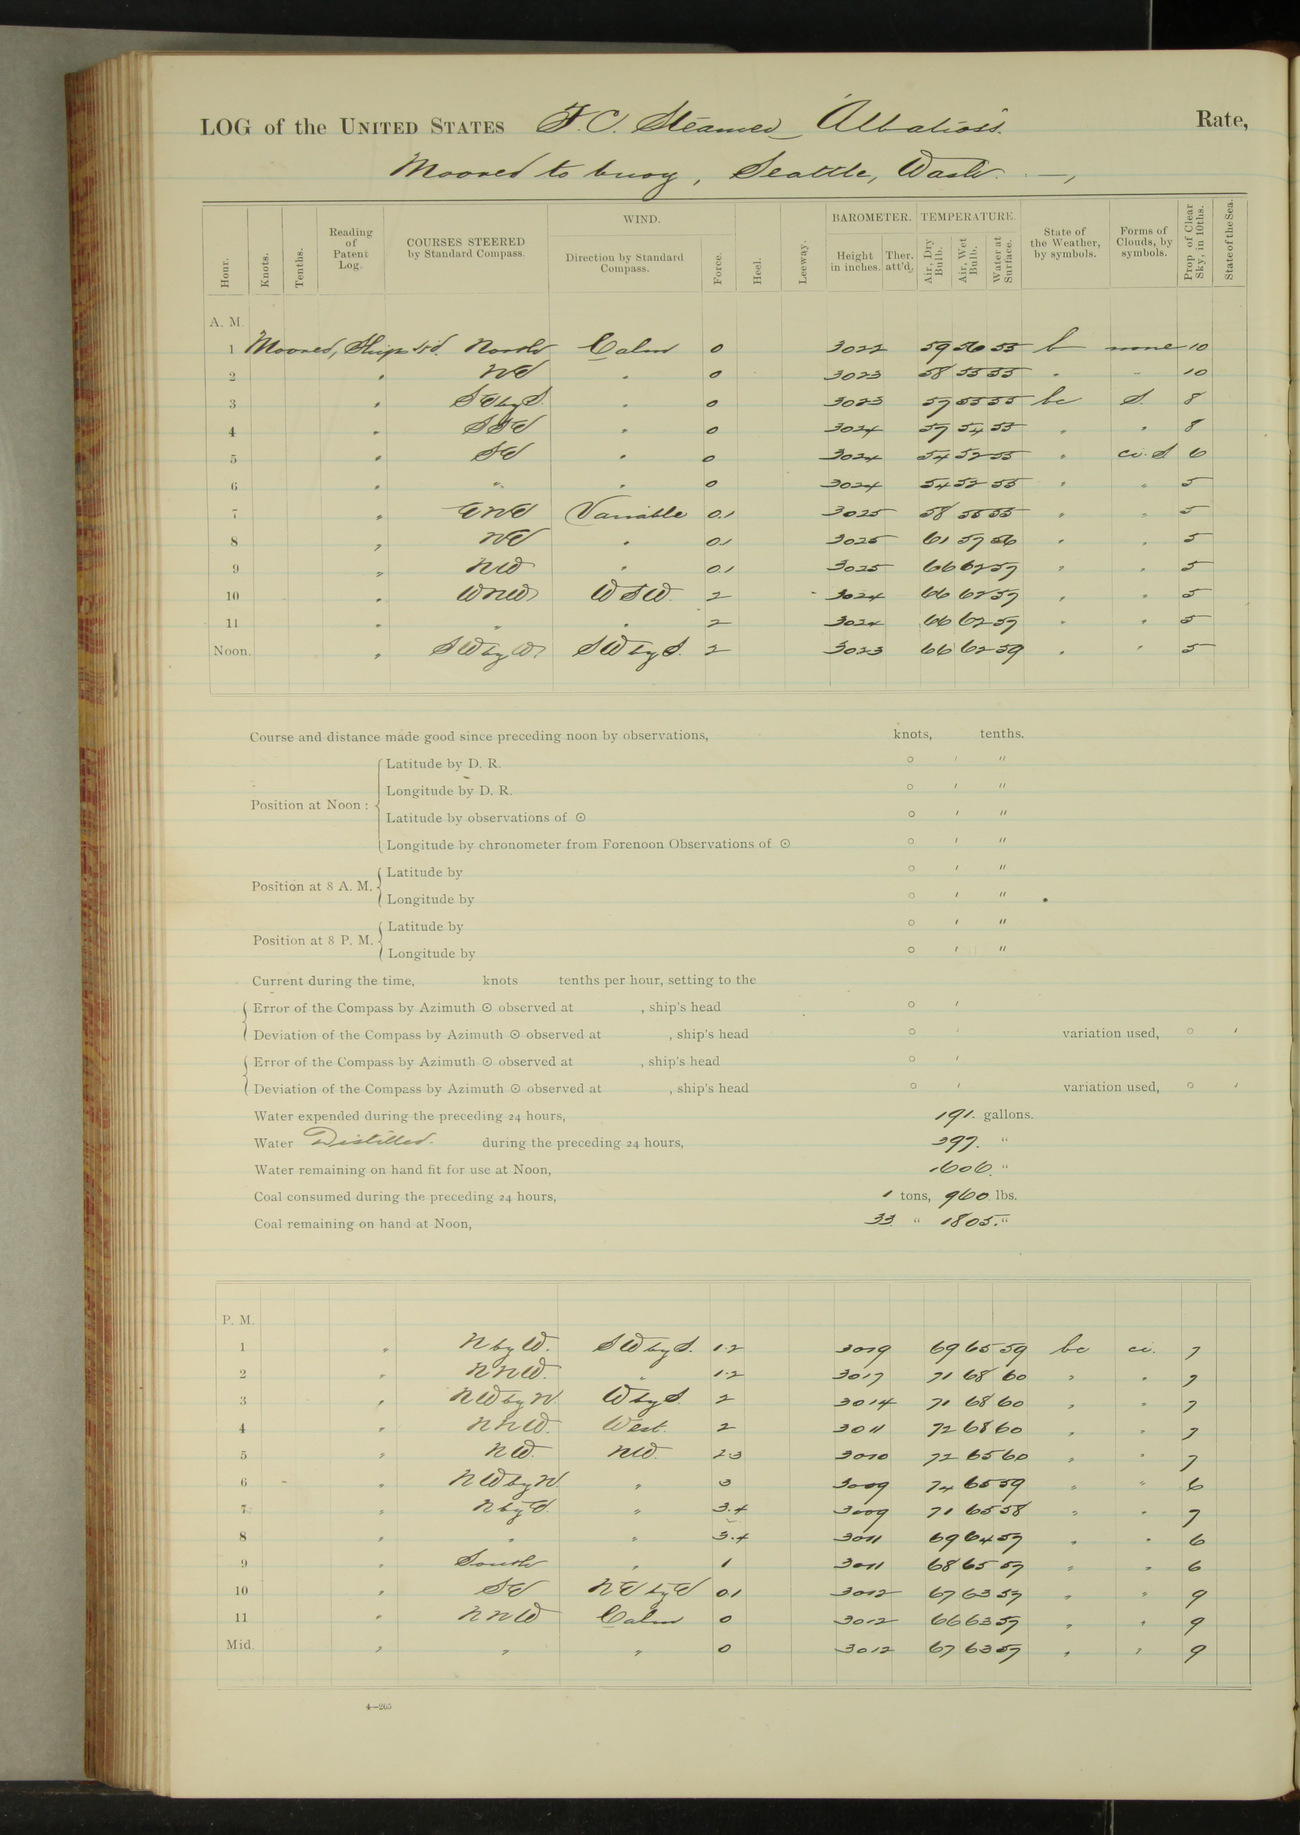 LOG of the UNITED STATES F. C. Steamer "Albatross". Rate,
Moored to buoy, Seattle, Wash.
Hour. Knots. Tenths. Reading of Patent Log. COURSES STEERED by Standard Compass. WIND. Direction by Standard Compass. Force. Heel. Leeway. BAROMETER. Height in inches. Ther. att'd. TEMPERATURE. Air, Dry Bulb. Air, Wet Bulb. Water at Surface. State of the Weather, by symbols. Forms of Clouds, by symbols. Prop. of Clear Sky, in 10ths. State of the Sea.
A. M.
1 Moored, Ship h'd. North Calm 0 3022 59 56 55 b none 10
2 " NE " 0 3023 58 55 55 " " 10
3 " SE by S. " 0 3023 57 55 55 bc S. 8
4 " SSE " 0 3024 57 54 55 " " 8
5 " SE " 0 3024 54 52 55 " ci. S 6
6 " " " 0 3024 54 52 55 " " 5
7 " ENE Variable 0.1 3025 58 55 55 " " 5
8 " NE " 0.1 3025 61 57 56 " " 5
9 " NW " 0.1 3025 66 62 57 " " 5
10 " WNW WSW. 2 3024 66 62 57 " " 5
11 " " " 2 3024 66 62 57 " " 5
Noon. " SW by W SW by S. 2 3023 66 62 59 " " 5
Course and distance made good since preceding noon by observations, knots, tenths.
Position at Noon : Latitude by D. R. ° ′ ″
Longitude by D. R. ° ′ ″
Latitude by observations of ⊙ ° ′ ″
Longitude by chronometer from Forenoon Observations of ⊙ ° ′ ″
Position at 8 A. M. Latitude by ° ′ ″
Longitude by ° ′ ″
Position at 8 P. M. Latitude by ° ′ ″
Longitude by ° ′ ″
Current during the time, knots tenths per hour, setting to the
Error of the Compass by Azimuth ⊙ observed at , ship's head ° ′
Deviation of the Compass by Azimuth ⊙ observed at , ship's head ° ′ variation used, ° ′
Error of the Compass by Azimuth ⊙ observed at , ship's head ° ′
Deviation of the Compass by Azimuth ⊙ observed at , ship's head ° ′ variation used, ° ′
Water expended during the preceding 24 hours, 191. gallons.
Water Distilled. during the preceding 24 hours, 397. "
Water remaining on hand fit for use at Noon, 1606. "
Coal consumed during the preceding 24 hours, 1 tons, 960 lbs.
Coal remaining on hand at Noon, 33 " 1805. "
P. M.
1 " N by W. SW by S. 1.2 3019 69 65 59 bc ci. 7
2 " NNW. " 1.2 3017 71 68 60 " " 7
3 " NW by N W by S. 2 3014 71 68 60 " " 7
4 " NNW. West. 2 3011 72 68 60 " " 7
5 " NW. NW. 2.3 3010 72 65 60 " " 7
6 " NW by N " 3 3009 74 65 59 " " 6
7 " N by E. " 3.4 3009 71 65 58 " " 7
8 " " " 3.4 3011 69 64 57 " " 6
9 " South " 1 3011 68 65 57 " " 6
10 " SE NE by E 0.1 3012 67 63 57 " " 9
11 " NNW Calm 0 3012 66 63 57 " " 9
Mid. " " " 0 3012 67 63 57 " " 9
4—265